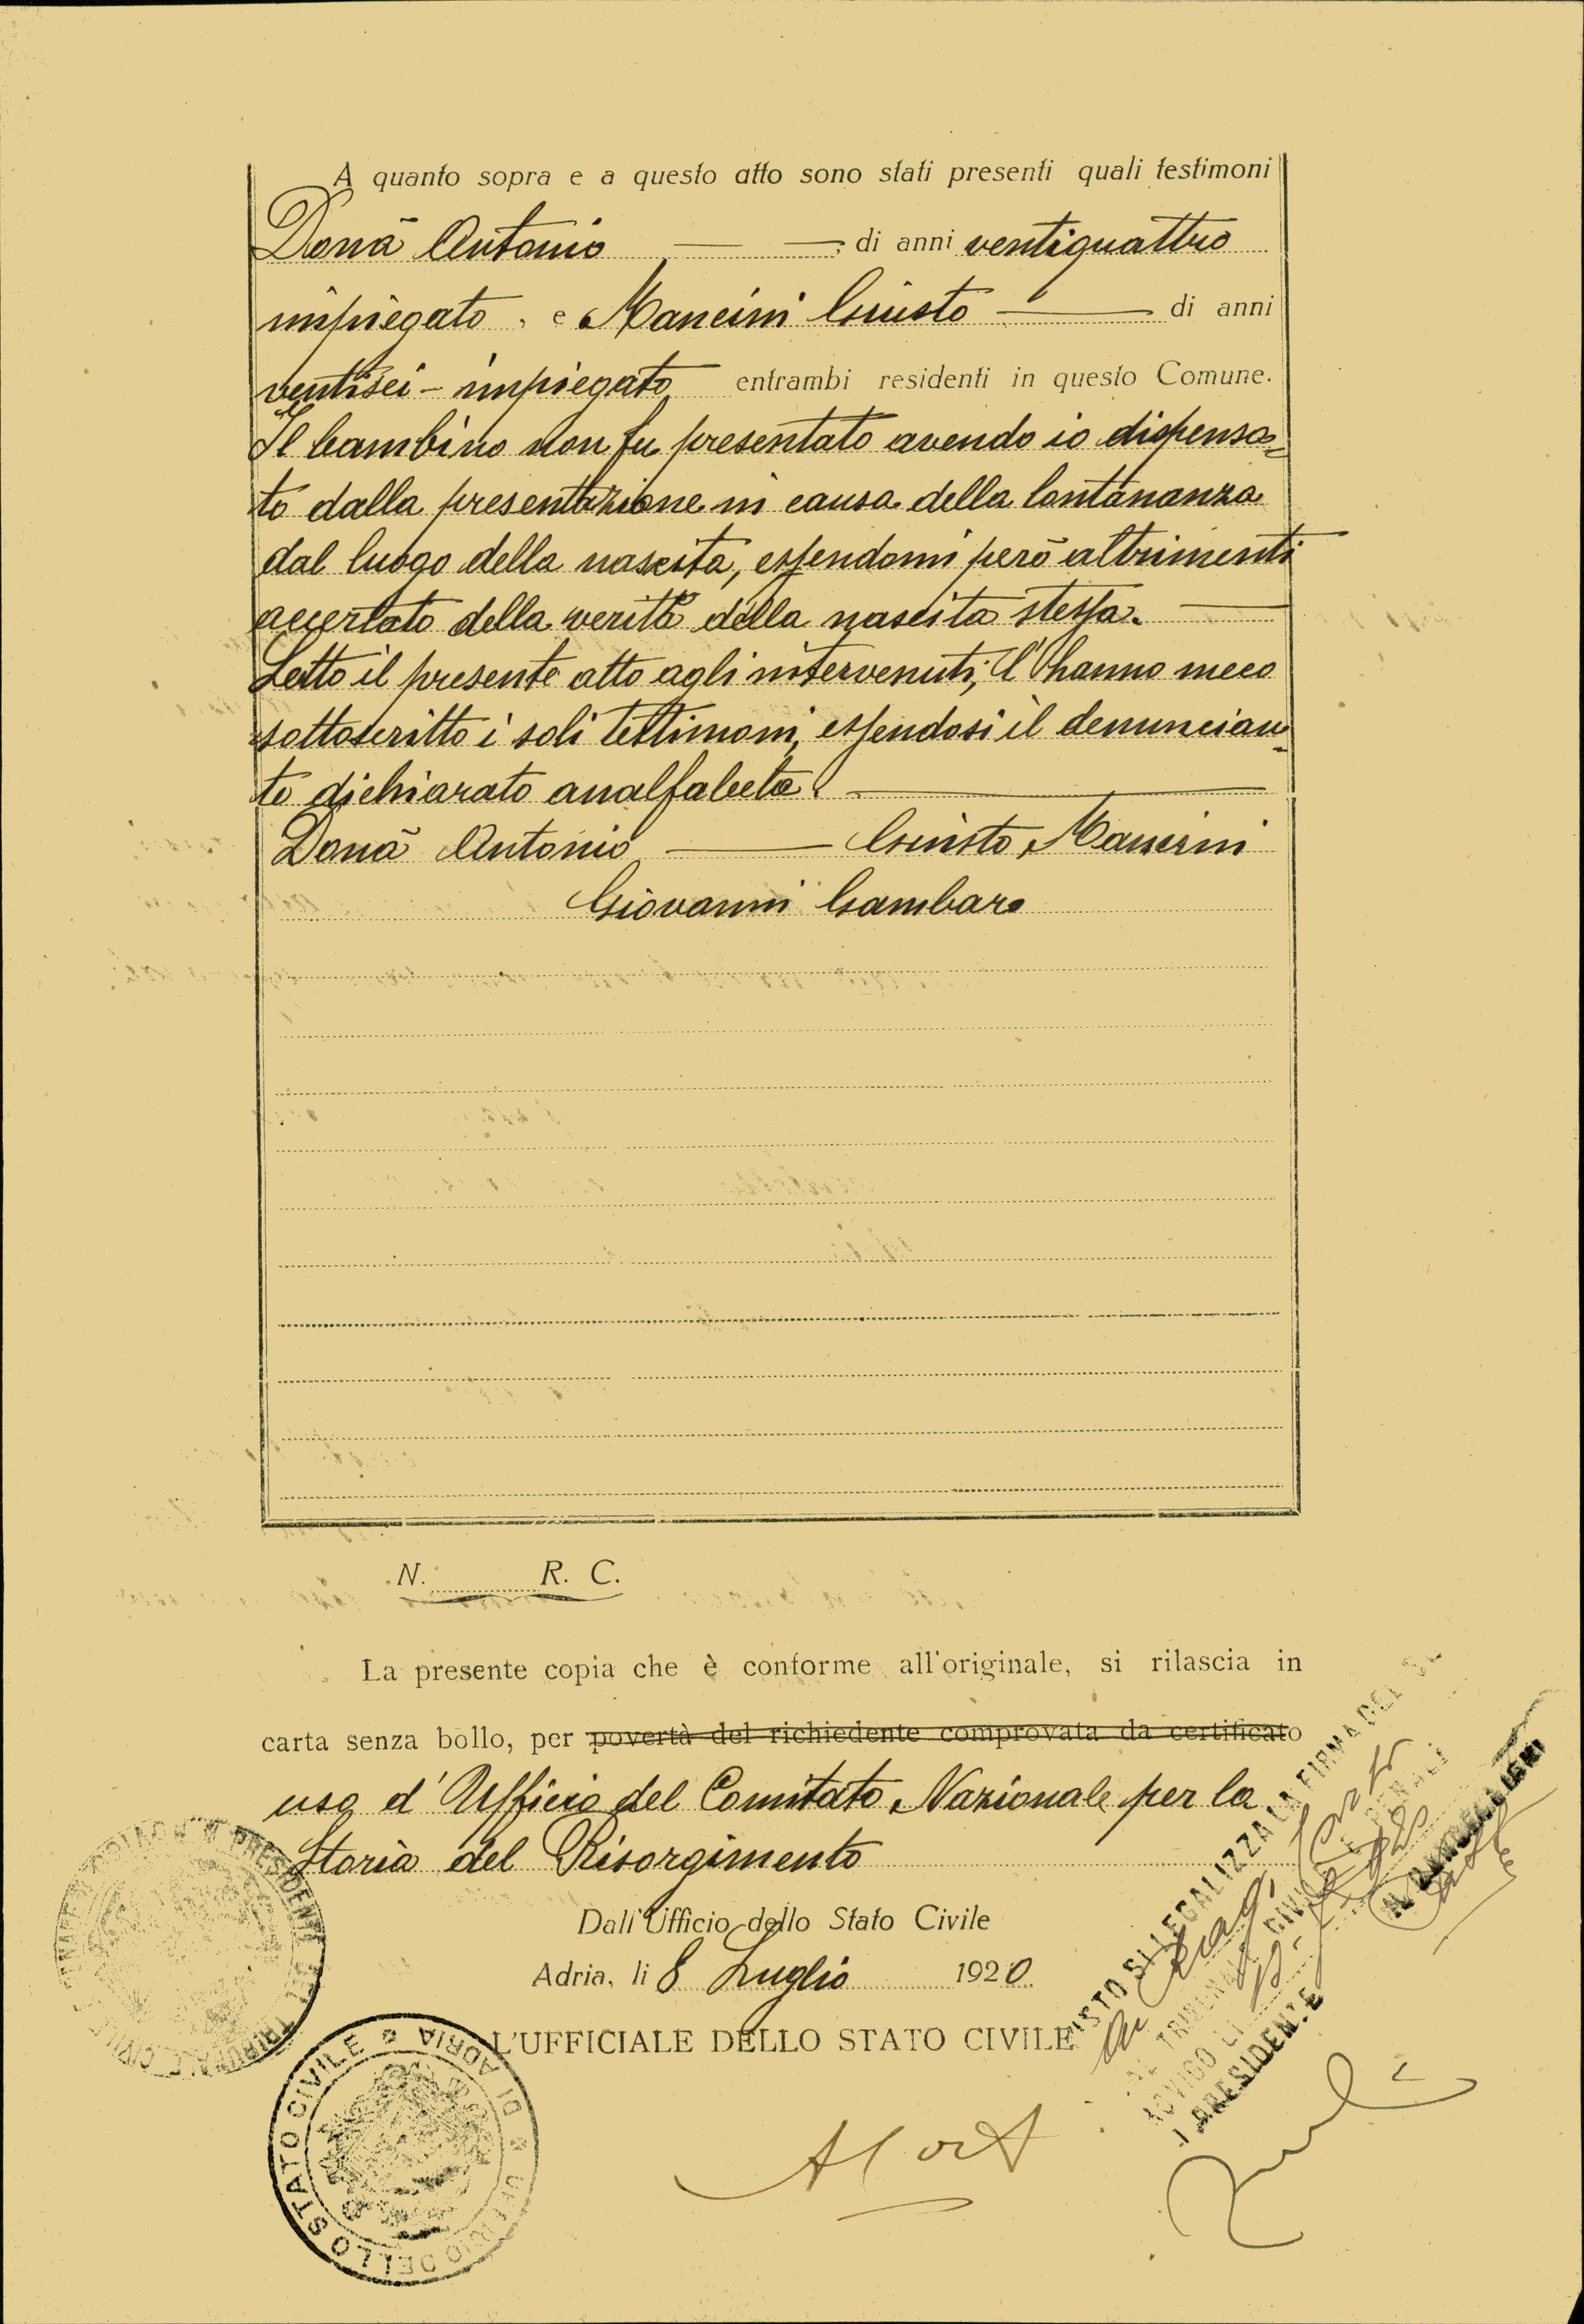 A quanto sopra e a questo atto sono stati presenti quali testimoni
Donà Antonio di anni ventiquattro
impiegato, e Mancini Giusto di anni
ventisei - impiegato entrambi residenti in questo Comune.
Il bambino non fu presentato avendo io dispensa=
to dalla presentazione in causa della lontananza
dal luogo della nascita, essendomi però altrimenti
accertato della verità della nascita stessa.
Letto il presente atto agli intervenuti, l'hanno meco
sottoscritto i soli testimoni, essendosi il denuncian=
te dichiarato analfabeta.
Donà Antonio Giusto Mancini
Giovanni Gambaro
N. R. C.
La presente copia che è conforme all'originale, si rilascia in
carta senza bollo, per povertà del richiedente comprovata da certificato
uso d'Ufficio del Comitato Nazionale per la
Storia del Risorgimento
Dall'Ufficio dello Stato Civile
Adria, li 8 Luglio 1920
L'UFFICIALE DELLO STATO CIVILE
UFFICIO DELLO STATO CIVILE DI ADRIA
VISTO SI LEGALIZZA LA FIRMA DEL
IL PRESIDENTE
IL CANCELLIERE